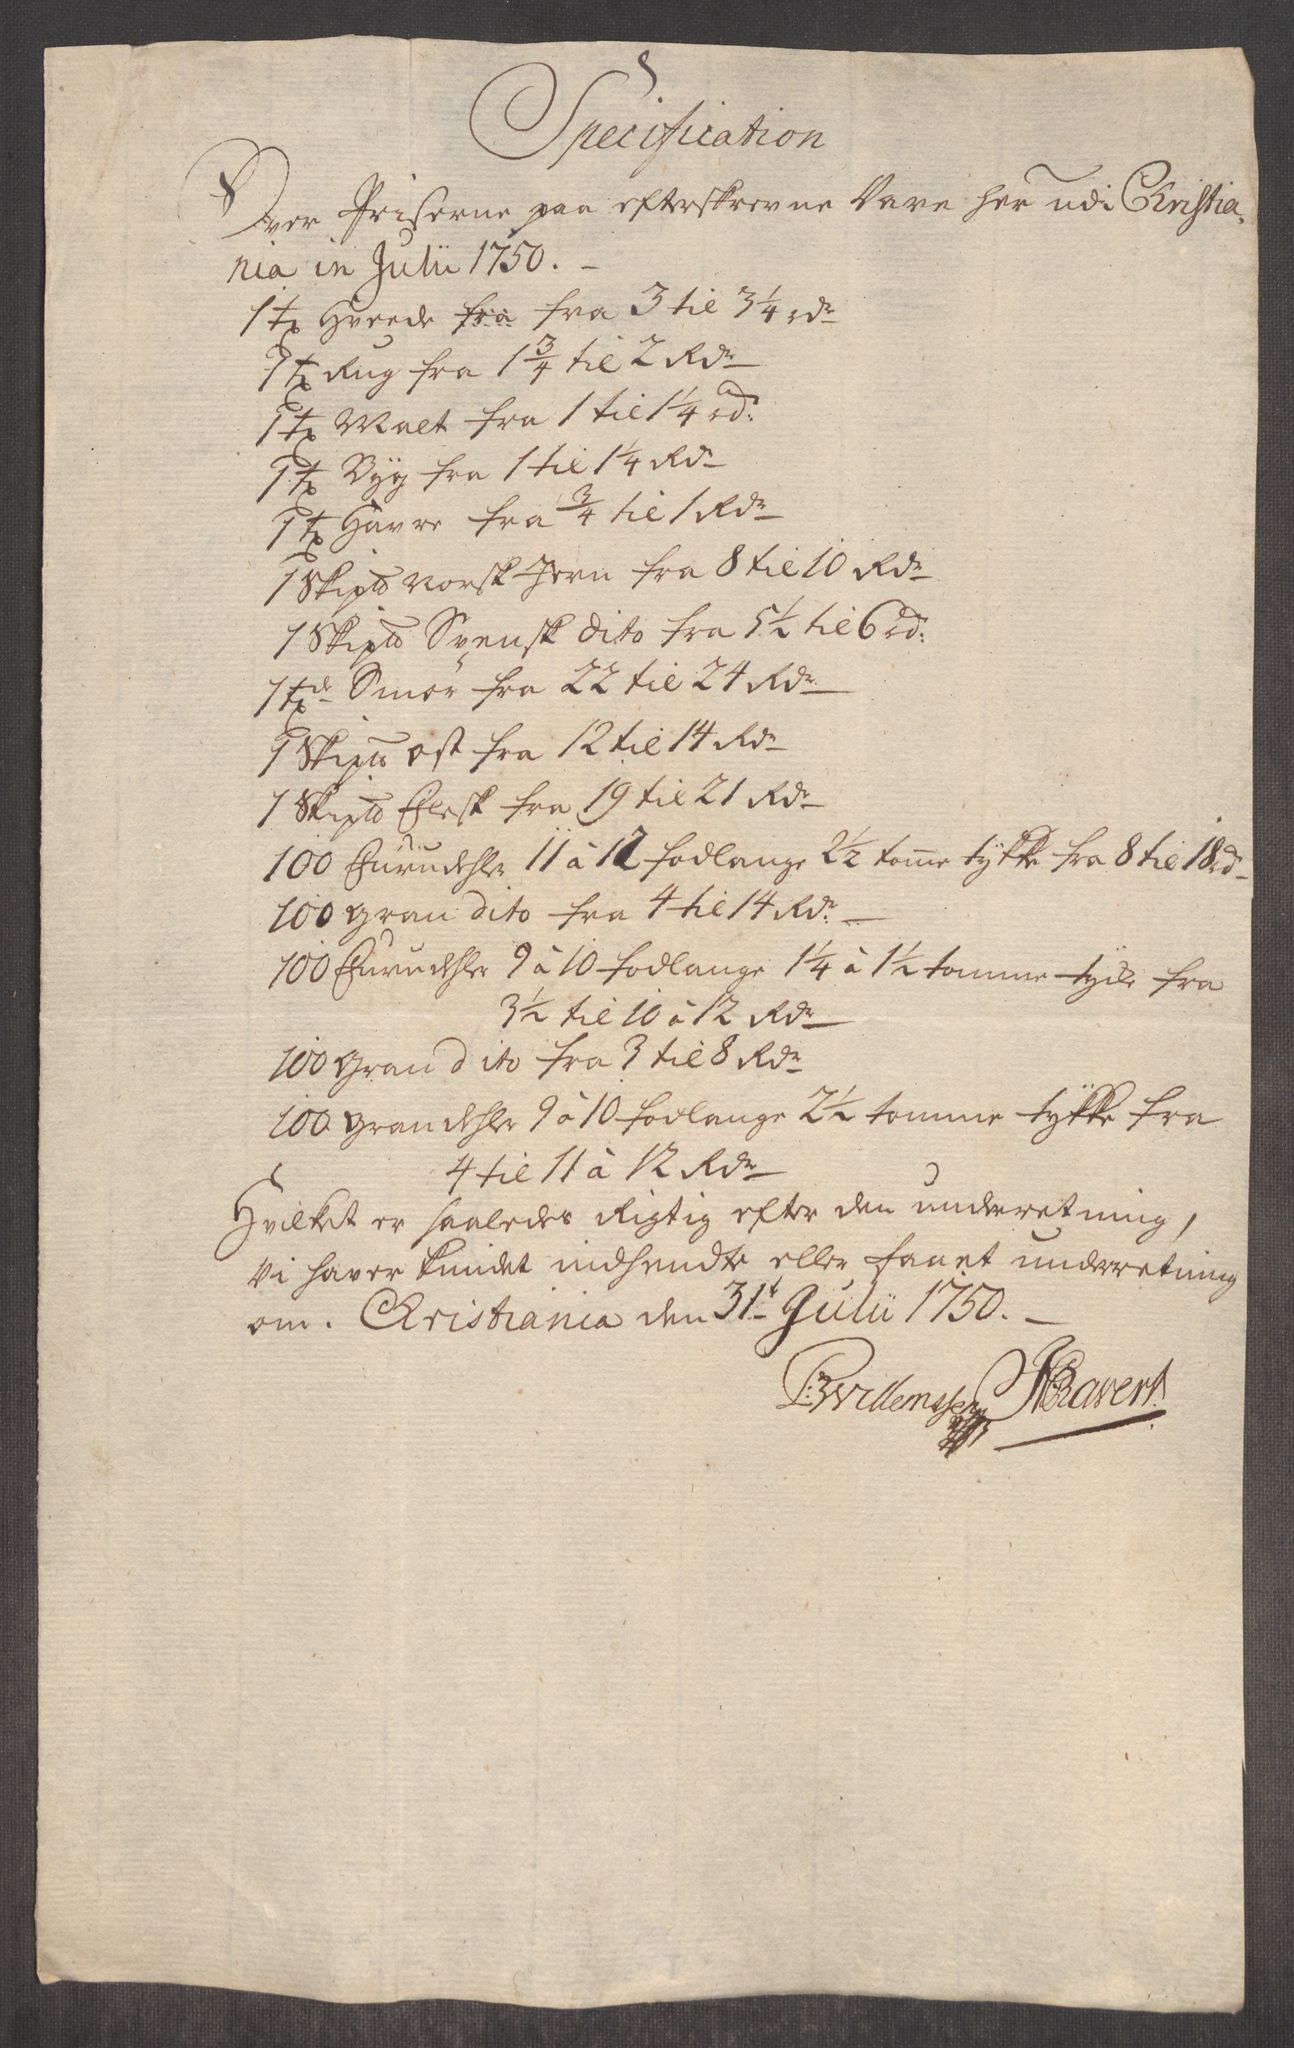 Specification
Over Priserne paa efterskrevne Vare her udi Christia-
nia in Julii 1750. -
1 tø Hveede fra fra 3 til 3¼ rdr
1 tø Rug fra 1¾ til 2 Rdr
1 tø Malt fra 1 til 1¼ rd:
1 tø Byg fra 1 til 1¼ Rdr
1 tø Havre fra ¾ til 1 Rdr
1 Skipd Norsk Jern fra 8 til 10 Rdr
1 Skipd Svensk dito fra 5½ til 6 rd:
1 tøde Smør fra 22 til 24 Rdr
1 Skipd ost fra 12 til 14 Rdr
1 Skipd Flesk fra 19 til 21 Rdr
100 Furudehler 11 à 12 fodlange 2½ tome tykke fra 8 til 18 rd
100 gran dito fra 4 til 14 Rdr. -
100 Furudehler 9 à 10 fodlange 1¼ à 1½ tomme tycke fra
3½ til 10 à 12 Rdr
100 Gran dito fra 3 til 8 Rdr
100 grandehler 9 à 10 fodlange 2½ tomme tykke fra
4 til 11 à 12 Rdr
Hvilket er saaledes Rigtig efter den underretning,
vi haver kundet indhendte eller faaet underretning
om. Christiania den 31t Julii 1750. -
P: Willemssen Ravert